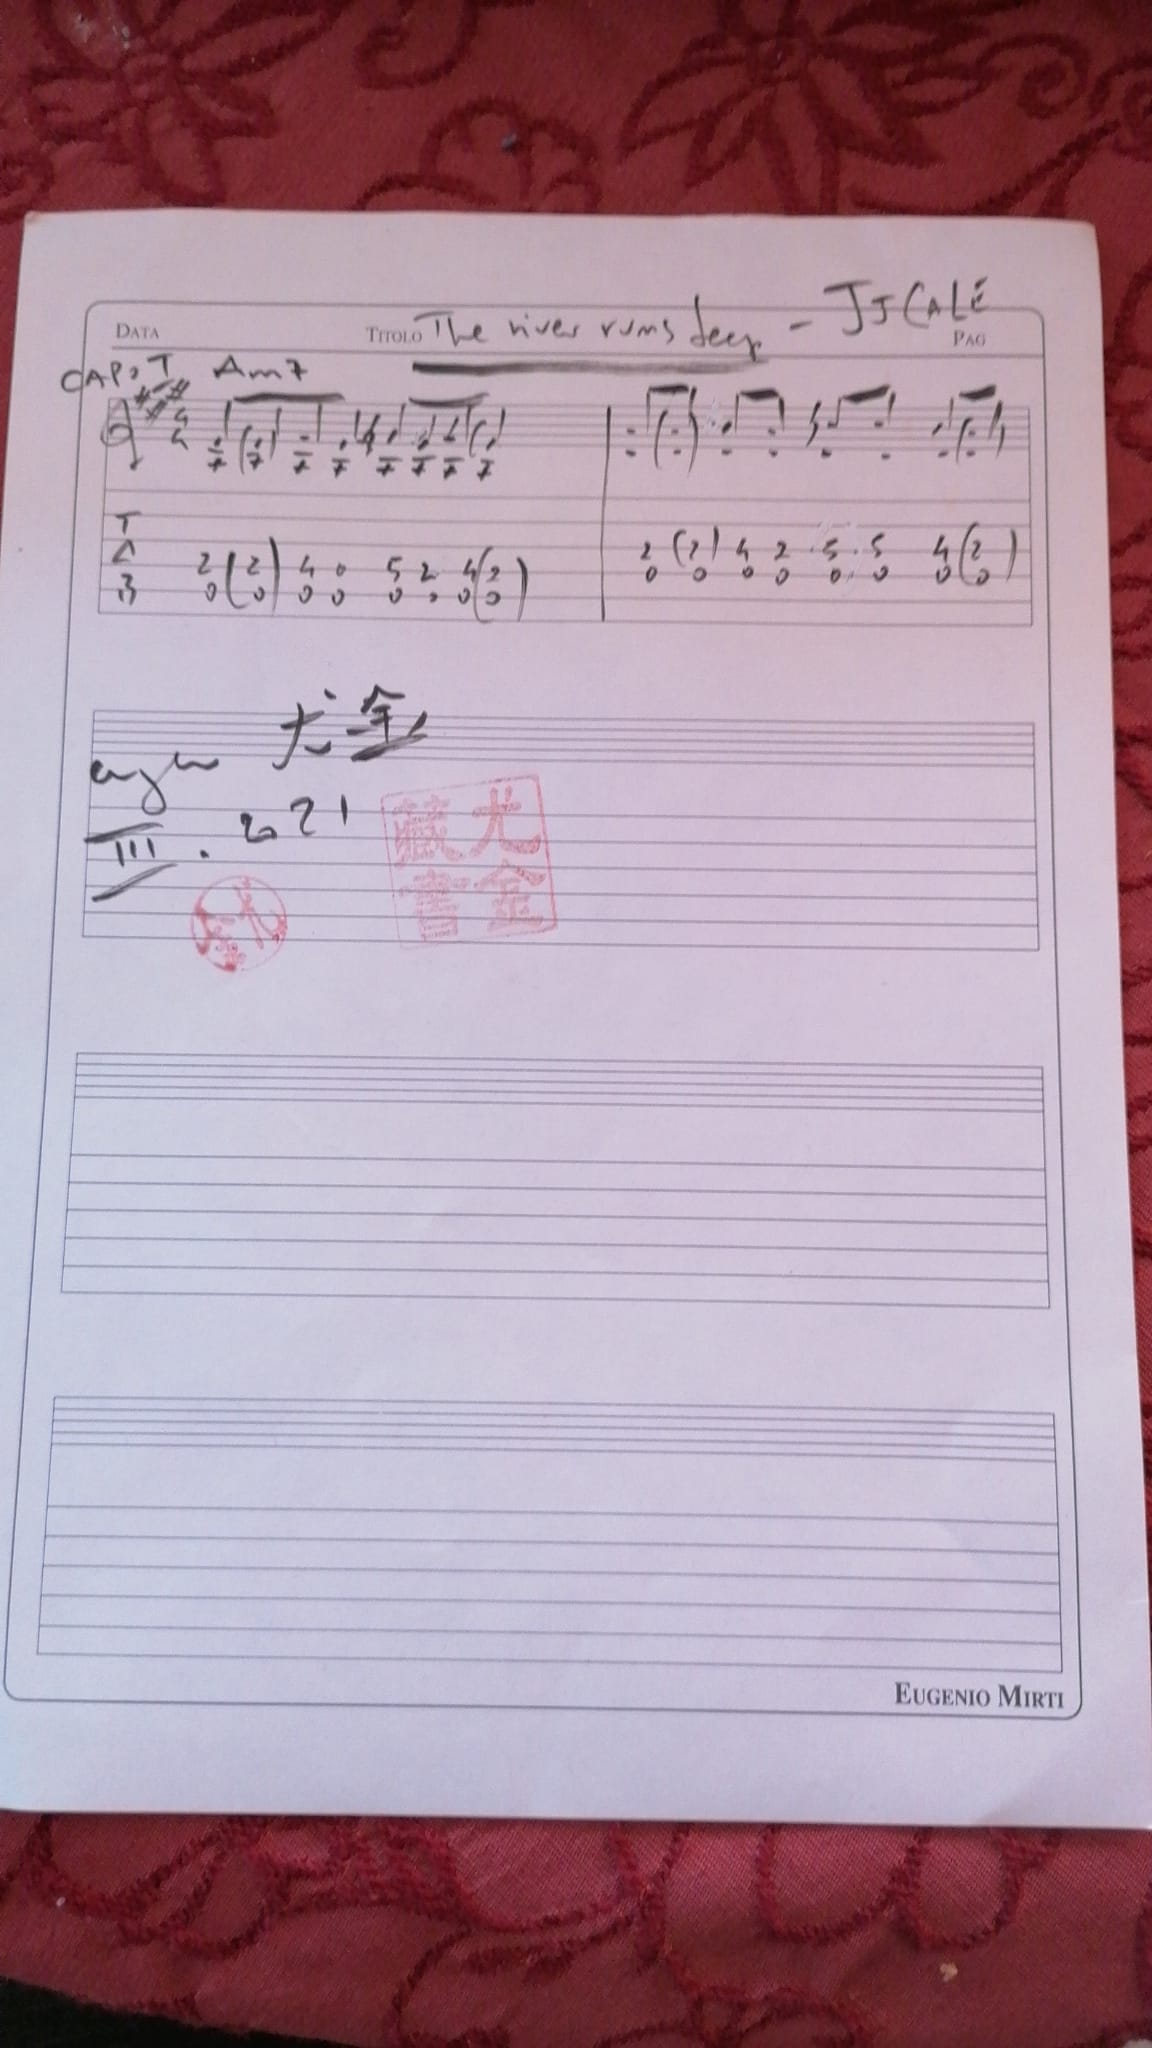 DATA TITOLO The river runs deep - JJ CALE PAG
CAPOT Am7
4
4
T
A
B
2 (2) 4 0 5 2 4 (2) 2 (2) 4 2 5 5 4 (2)
0 0 0 0 0 0 0 0 0 0 0 0 0 0 0
尤金
III. 2021
尤金
藏書
尤金
EUGENIO MIRTI